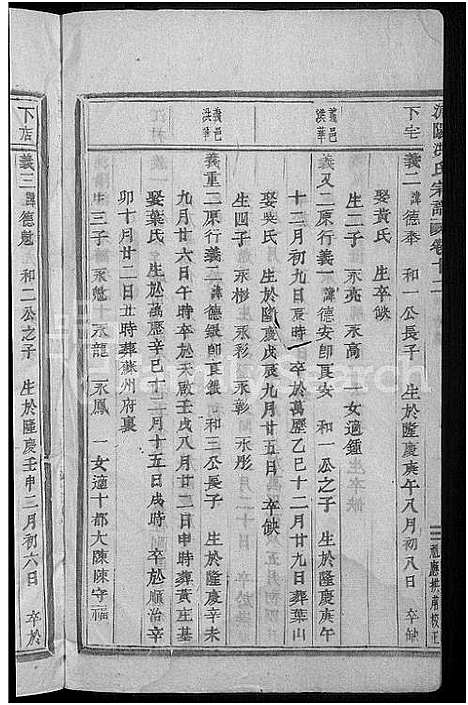 洪氏宗譜 卷十二
下宅
義二 諱德奉 和一公長子 生於隆慶庚午八月初八日 卒缺
娶黃氏 生卒缺
生二子 永亮 永高 一女適鍾
義邑洪華
義又二 原行義一 諱德安 即良安 和一公之子 生於隆慶庚午
十二月初九日辰時 卒於萬歷乙巳十二月廿九日 葬葉山
娶吳氏 生於隆慶戊辰九月廿五日 卒缺
生四子 永彬 永彩 永彰 永彤
義邑洪華
義重二 原行義二 諱德銀 即良銀 和三公長子 生於隆慶辛未
九月廿六日午時 卒於天啟壬戌八月廿二日申時 葬黃庄基
娶葉氏 生於萬歷辛巳十二月十五日戌時 卒於順治辛
卯十月廿二日丑時 葬蘇州府裏
生三子 永魁 永龍 永鳳 一女適十都大陳陳守福
下店
義三 諱德魁 和二公之子 生於隆慶壬申三月初六日 卒於